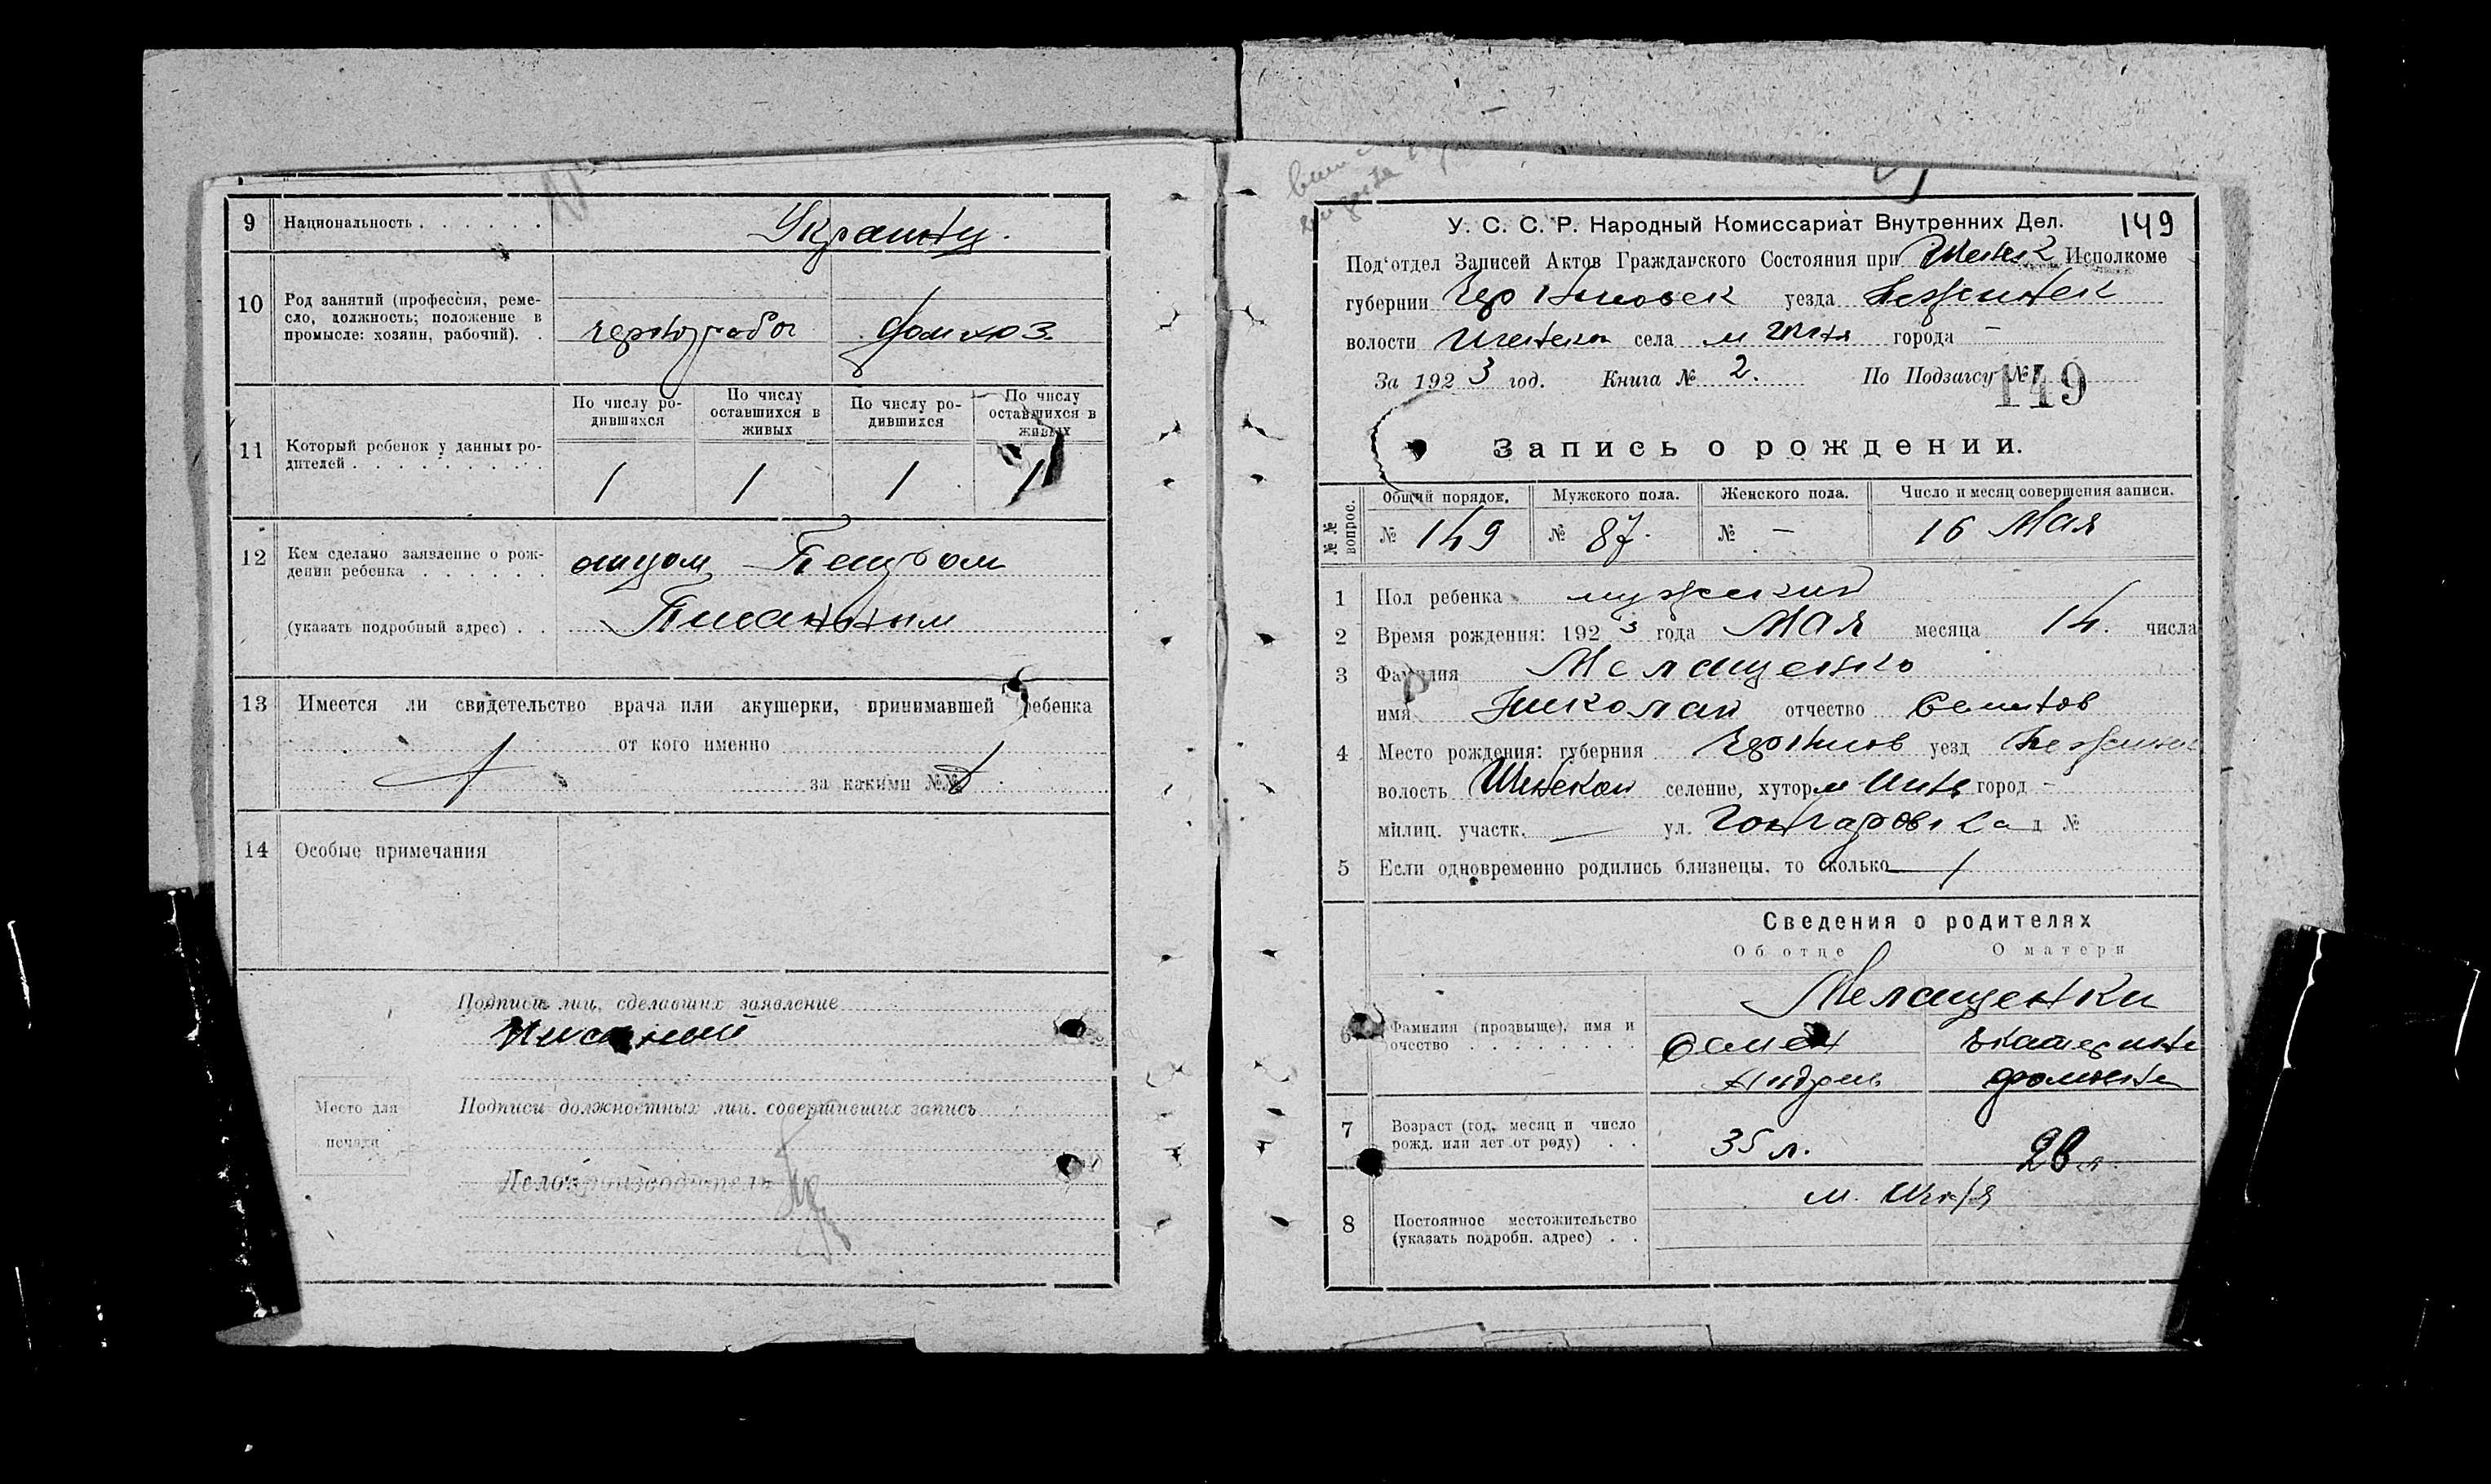 9 Национальность . . . . . .
Украинцы.
10 Род занятий (профессия, реме-
сло, должность; положение в
промысле: хозяин, рабочий). .
чернораб домхоз.
11 Который ребенок у данных ро-
дителей . . . . . . . . . .
По числу ро-
дившихся
По числу
оставшихся в
живых
По числу ро-
дившихся
По числу
оставшихся в
живых
1 1 1 1
12 Кем сделано заявление о рож-
дении ребенка . . . . . .
отцом Петром
(указать подробный адрес) . .
Писанным
13 Имеется ли свидетельство врача или акушерки, принимавшей ребенка
от кого именно
за какими №№
14 Особые примечания
Подписи лиц, сделавших заявление
Писанный
Место для
печати
Подписи должностных лиц, совершивших запись
Делопроизводитель
У. С. С. Р. Народный Комиссариат Внутренних Дел. 149
Под‘отдел Записей Актов Гражданского Состояния при Исполкоме
губернии Черниговск уезда Нежинск
волости села м Ичня города —
За 1923 год. Книга № 2. По Подзагсу № 149
Запись о рождении.
№ № вопрос.
Общий порядок. Мужского пола. Женского пола. Число и месяц совершения записи.
№ 149 № 87. № — 16 Мая
1 Пол ребенка мужской
2 Время рождения: 1923 года Мая месяца 14. числа
3 Фамилия Мелащенко
имя Николай отчество Семенов
4 Место рождения: губерния Чернигов уезд Нежинск
волость селение, хутор м город —
милиц. участк. — ул. Гончаровка д №
5 Если одновременно родились близнецы, то сколько —
Сведения о родителях
Об отце О матери
Мелащенки
6 Фамилия (прозвыще), имя и
очество . . . . . . . .
Семен Екатерина
Андреев Фоминна
7 Возраст (год, месяц и число
рожд. или лет от роду) . .
35 л. 28 л.
8 Постоянное местожительство
(указать подробн. адрес) . .
м. Ичня